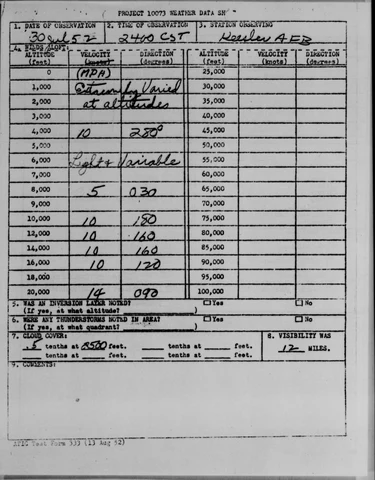 PROJECT 10073 WEATHER DATA SH
1. DATE OF OBSERVATION 2. TIME OF OBSERVATION 3. STATION OBSERVING
30 Jul 52 2400 CST Keesler AFB
4. WINDS ALOFT:
ALTITUDE (feet) VELOCITY (knots) DIRECTION (degrees) ALTITUDE (feet) VELOCITY (knots) DIRECTION (degrees)
0 (MPH) 25,000
1,000 Extremely Varied 30,000
2,000 at altitudes 35,000
3,000 40,000
4,000 10 280° 45,000
5,000 50,000
6,000 Light & Variable 55,000
7,000 60,000
8,000 5 030 65,000
9,000 70,000
10,000 10 180 75,000
12,000 10 160 80,000
14,000 10 160 85,000
16,000 10 120 90,000
18,000 95,000
20,000 14 090 100,000
5. WAS AN INVERSION LAYER NOTED? Yes No
(If yes, at what altitude? )
6. WERE ANY THUNDERSTORMS NOTED IN AREA? Yes No
(If yes, at what quadrant? )
7. CLOUD COVER: 8. VISIBILITY WAS
.5 tenths at 2500 feet. tenths at feet. 12 MILES.
tenths at feet. tenths at feet.
9. COMMENTS:
ATIC Test Form 333 (13 Aug 52)